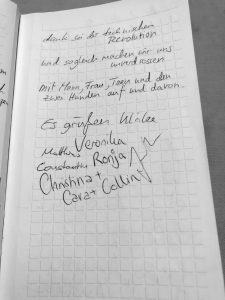 dank sei der technischen
Revolution
und sogleich machen wir uns
unverdrossen
mit Mann, Frau, und den
zwei Hunden auf und davon.
Es grüßen
Veronika
Matthias
Constantin Ronja
Christina +
Cara + Collin